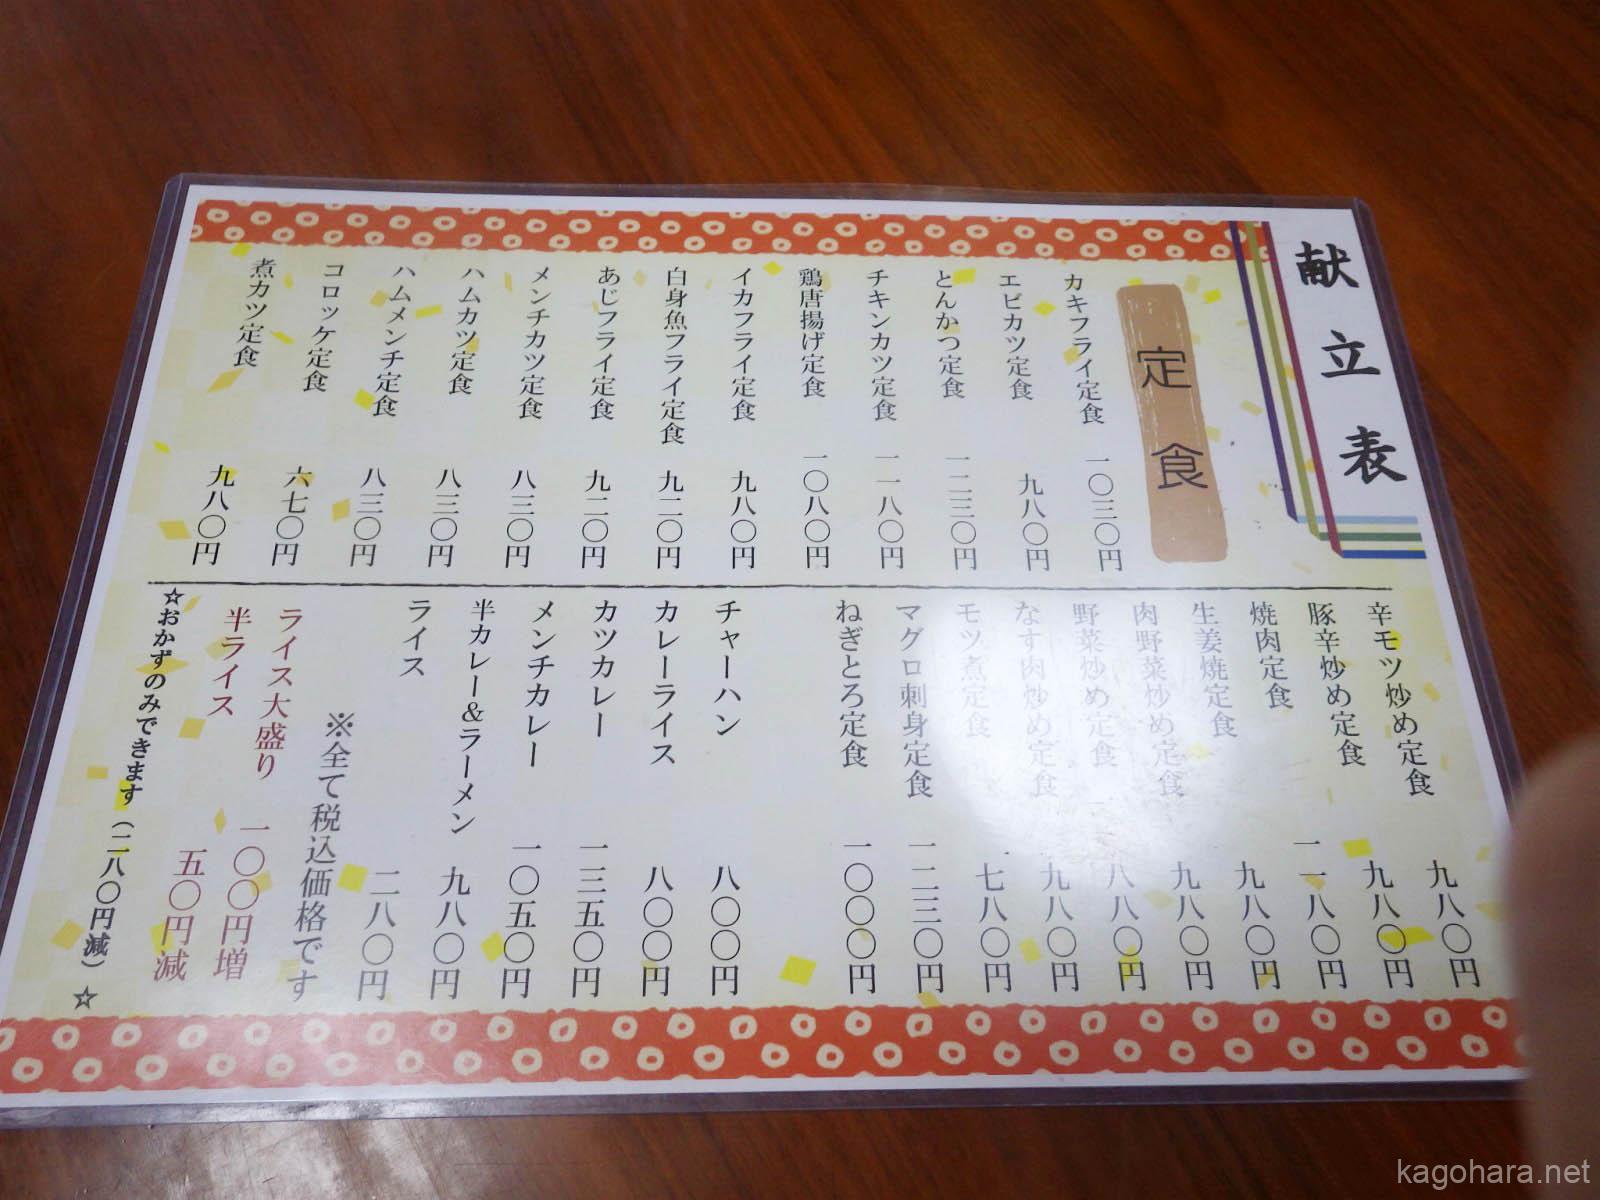 献立表
定食
カキフライ定食 一〇三〇円
エビカツ定食 九八〇円
とんかつ定食 一二三〇円
チキンカツ定食 一一八〇円
鶏唐揚げ定食 一〇八〇円
イカフライ定食 九八〇円
白身魚フライ定食 九二〇円
あじフライ定食 九二〇円
メンチカツ定食 八三〇円
ハムカツ定食 八三〇円
ハムメンチ定食 八三〇円
コロッケ定食 六七〇円
煮カツ定食 九八〇円
辛モツ炒め定食 九八〇円
豚辛炒め定食 九八〇円
焼肉定食 一一八〇円
生姜焼定食 九八〇円
肉野菜炒め定食 九八〇円
野菜炒め定食 八八〇円
なす肉炒め定食 九八〇円
モツ煮定食 七八〇円
マグロ刺身定食 一二三〇円
ねぎとろ定食 一〇〇〇円
チャーハン 八〇〇円
カレーライス 八〇〇円
カツカレー 一三五〇円
メンチカレー 一〇五〇円
半カレー&ラーメン 九八〇円
ライス 二八〇円
※全て税込価格です
ライス大盛り 一〇〇円増
半ライス 五〇円減
☆おかずのみできます（二八〇円減）☆
kagohara.net